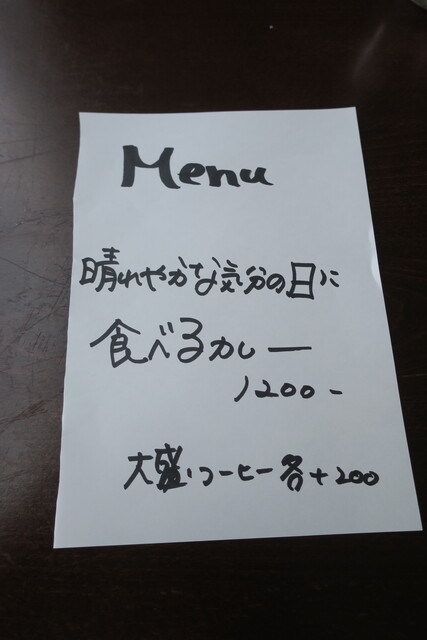 Menu
晴れやかな気分の日に
食べるカレー
1200-
大盛・コーヒー各+200